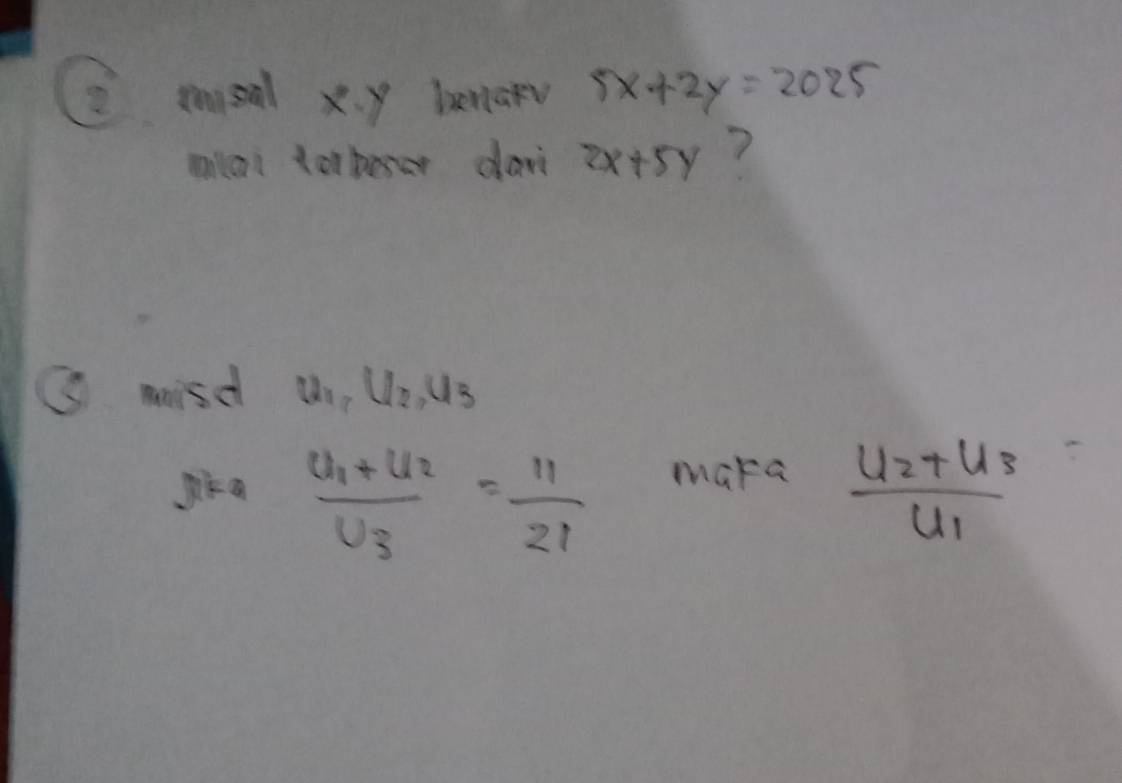 ② misal x.y benarv 5x+2y=2025
nilai terbesar dari 2x+5y ?
③ misal U1, U2, U3
jika U1+U2/U3 = 11/21 maka U2+U3/U1 =